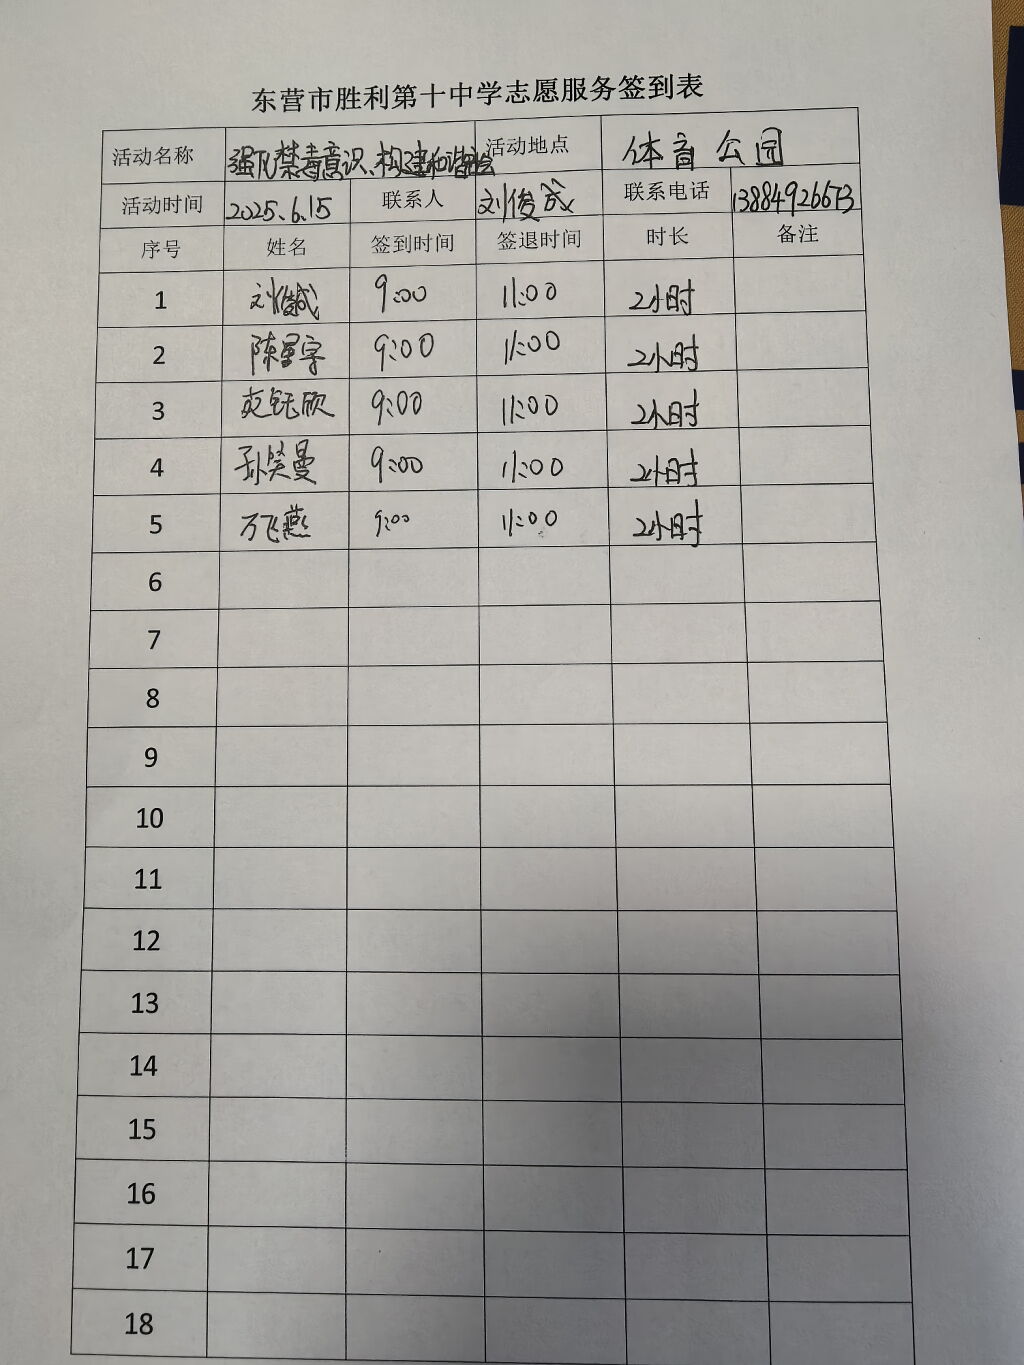 东营市胜利第十中学志愿服务签到表
活动名称 强化禁毒意识、构建和谐社会 活动地点 体育公园
活动时间 2025.6.15 联系人 刘俊成 联系电话 13884926673
序号 姓名 签到时间 签退时间 时长 备注
1 刘俊成 9:00 11:00 2小时
2 陈星宇 9:00 11:00 2小时
3 9:00 11:00 2小时
4 孙笑曼 9:00 11:00 2小时
5 万飞燕 9:00 11:00 2小时
6
7
8
9
10
11
12
13
14
15
16
17
18